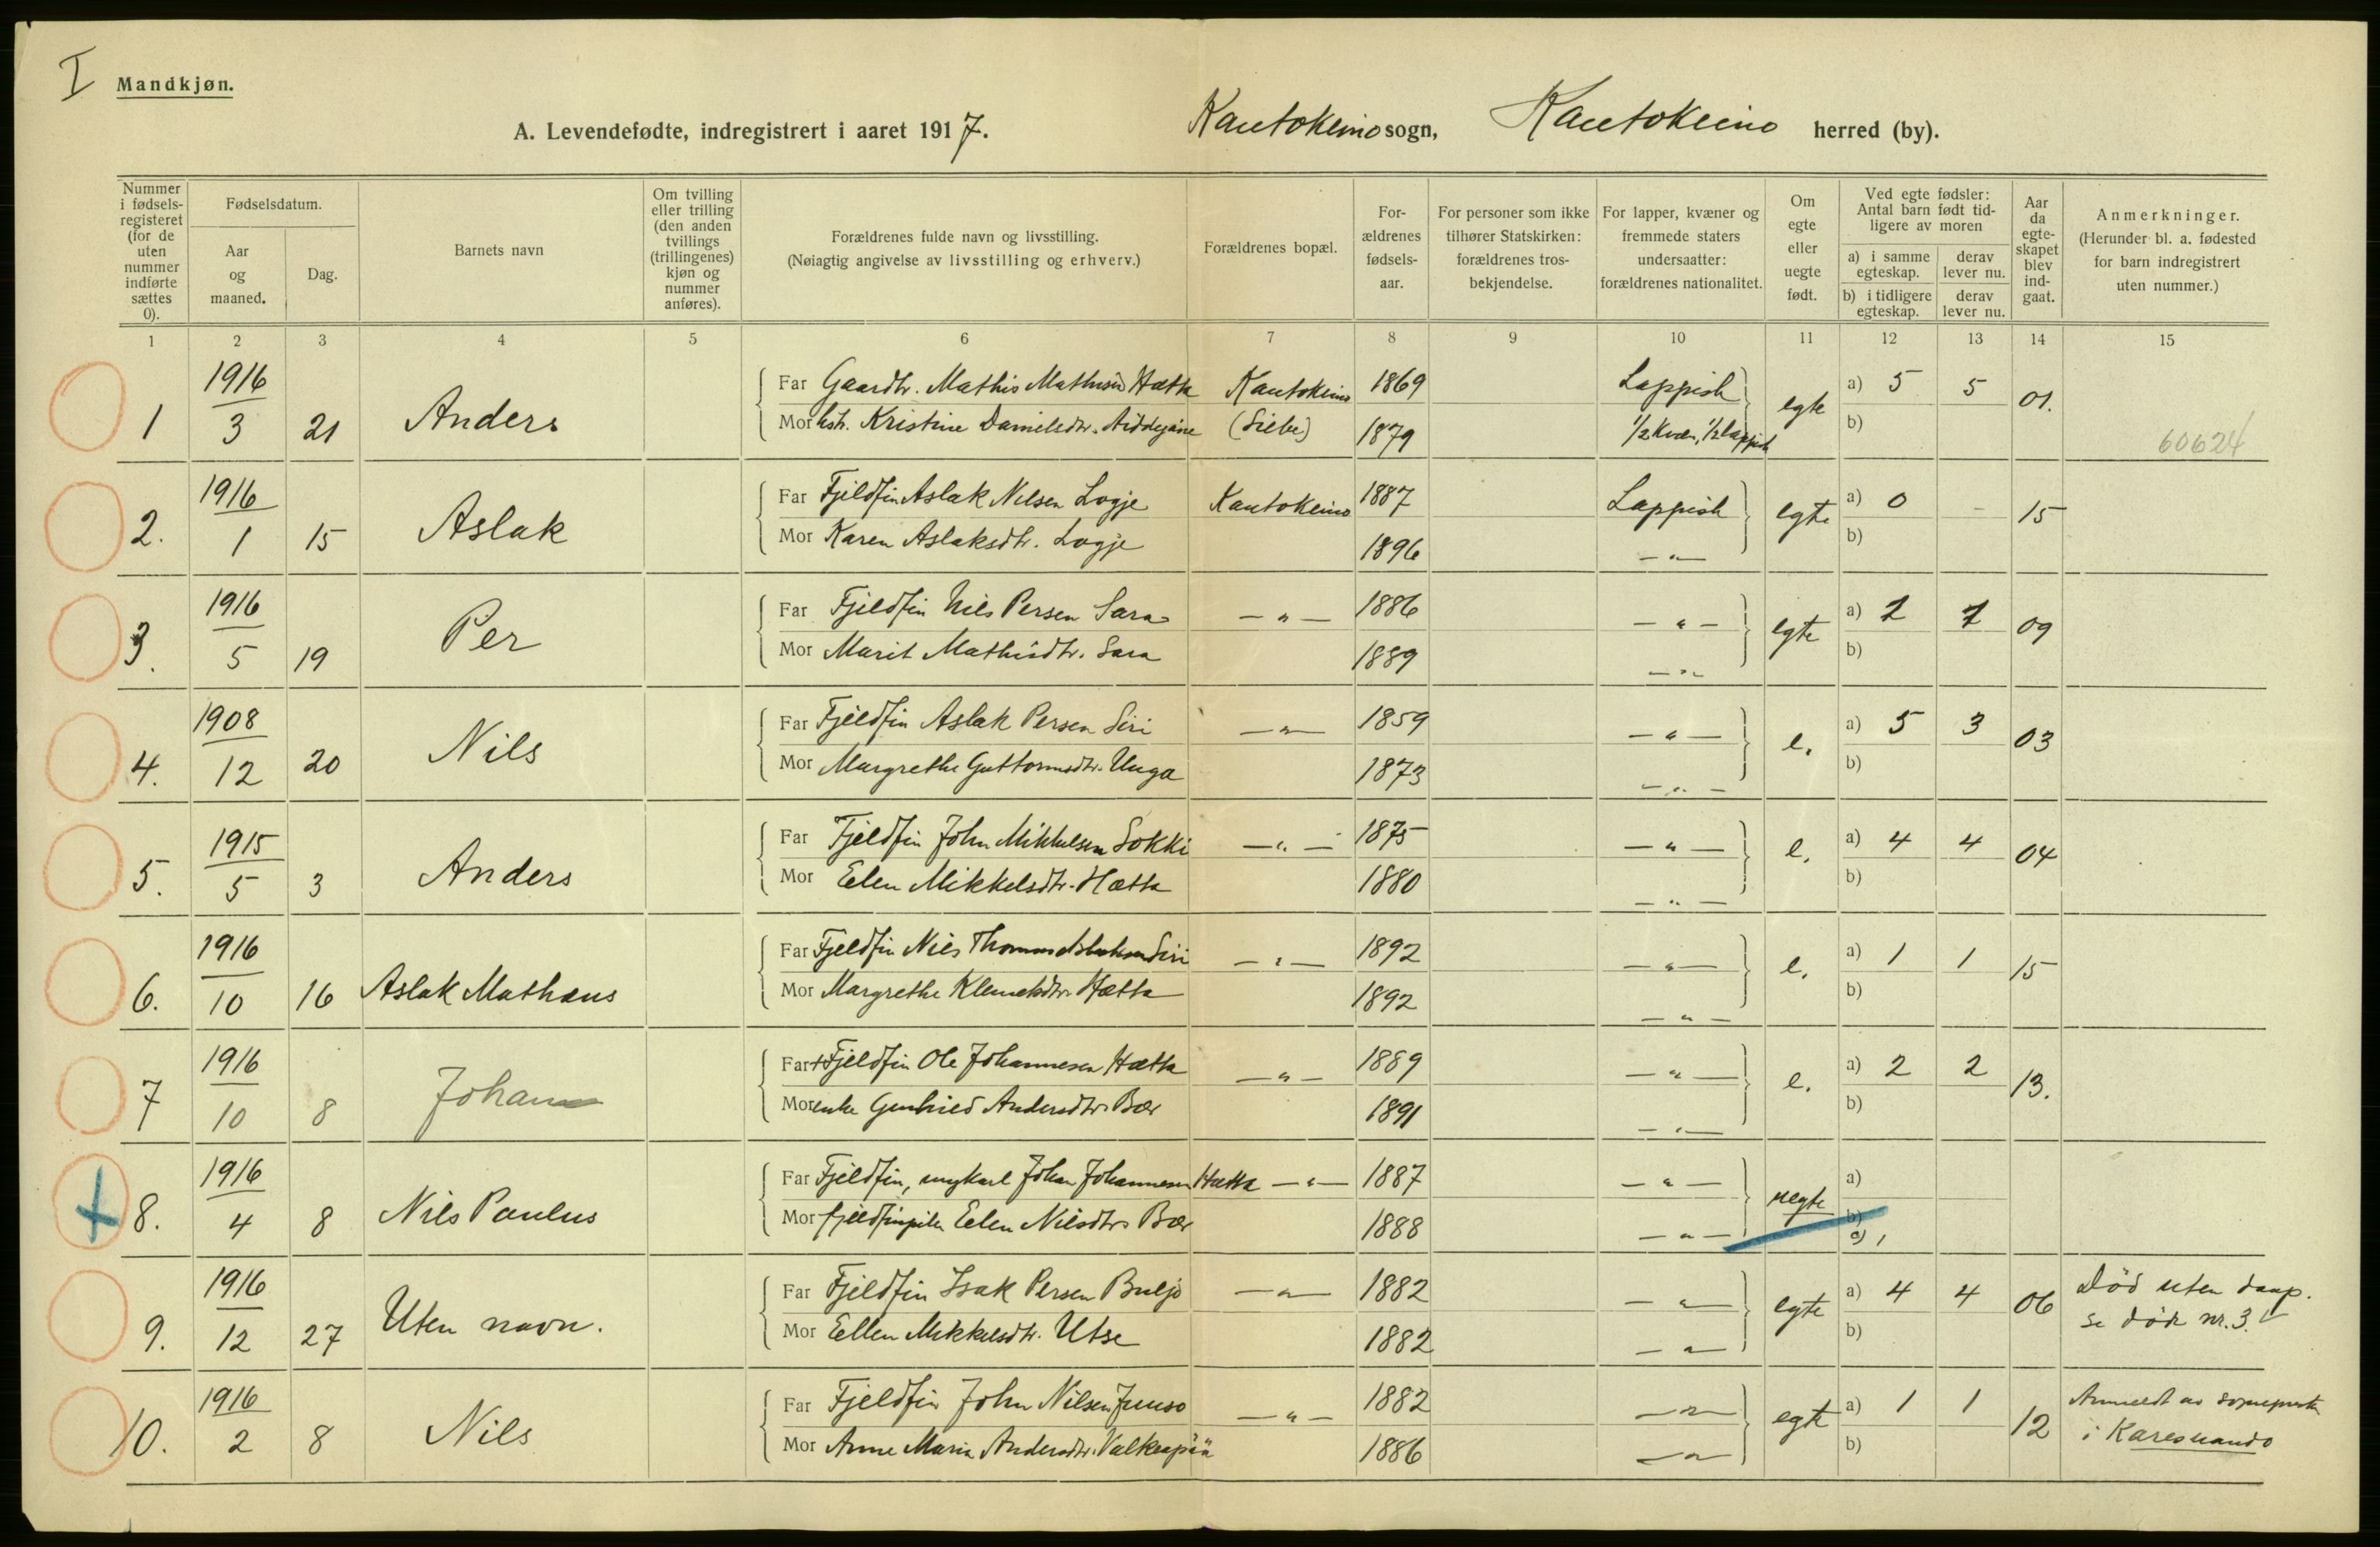 I Mandkjøn.
A. Levendefødte, indregistrert i aaret 1917. Kautokeino sogn, Kautokeino herred (by).
Nummer i fødsels-registeret (for de uten nummer indførte sættes 0).
Fødselsdatum.
Aar og maaned.
Dag.
Barnets navn
Om tvilling eller trilling (den anden tvillings (trillingenes) kjøn og nummer anføres).
Forældrenes fulde navn og livsstilling.
(Nøiagtig angivelse av livsstilling og erhverv.)
Forældrenes bopæl.
For-ældrenes fødsels-aar.
For personer som ikke tilhører Statskirken: forældrenes tros-bekjendelse.
For lapper, kvæner og fremmede staters undersaatter: forældrenes nationalitet.
Om egte eller uegte født.
Ved egte fødsler: Antal barn født tid-ligere av moren
a) i samme egteskap.
derav lever nu.
b) i tidligere egteskap.
derav lever nu.
Aar da egte-skapet blev ind-gaat.
Anmerkninger.
(Herunder bl. a. fødested for barn indregistrert uten nummer.)
1 2 3 4 5 6 7 8 9 10 11 12 13 14 15
1916 Far Gaardbr. Mathis Mathisen Hætta Kautokeino 1869 Lappisk a) 5 5
1 3 21 Anders Mor hstr. Kristine Danielsdtr. (Siebe) 1879 1/2 Kvæn, 1/2 lappisk egte b) 01.
60624
1916 Far Fjeldfin Aslak Nilsen Logje Kautokeino 1887 Lappisk a) 0 -
2. 1 15 Aslak Mor Karen Aslaksdtr. Logje 1896 — " — egte b) 15
1916 Far Fjeldfin Nils Persen Sara — " — 1886 — " — a) 2
3. 5 19 Per Mor Marit Mathisdtr. Sara 1889 — " — egte b) 09
1908 Far Fjeldfin Aslak Persen Siri — " — 1859 — " — a) 5 3
4. 12 20 Nils Mor Margrethe Guttormsdtr. Unga 1873 — " — e. b) 03
1915 Far Fjeldfin John Mikkelsen Sokki — " — 1875 — " — a) 4 4
5. 5 3 Anders Mor Elen Mikkelsdtr. Hætta 1880 — " — e. b) 04
1916 Far Fjeldfin Nils Thomas Aslaksen Siri — " — 1892 — " — a) 1 1
6. 10 16 Aslak Mathæus Mor Margrethe Klemetsdtr. Hætta 1892 — " — e. b) 15
1916 Far + Fjeldfin Ole Johannesen Hætta — " — 1889 — " — a) 2 2
7 10 8 Johan Mor enke Andersdtr. Bær 1891 — " — e. b) 13.
1916 Far Fjeldfin, ungkarl Johan Johannesen Hætta — " — 1887 — " — a)
8. 4 8 Nils Paulus Mor fjeldfinpike Ellen Nilsdtr. Bær 1888 — " — uegte b)
a) 1
1916 Far Fjeldfin Isak Persen Buljo — " — 1882 — " — a) 4 4 Død uten daap.
9. 12 27 Uten navn. Mor Ellen Mikkelsdtr. Utse 1882 — " — egte b) 06 se døde nr. 3.
1916 Far Fjeldfin John Nilsen Juuso — " — 1882 — " — a) 1 1 Anmeldt av sogneprest
10. 2 8 Nils Mor Anne Maria Andersdtr. Valkeapää 1886 — " — egte b) 12 i Karesuando